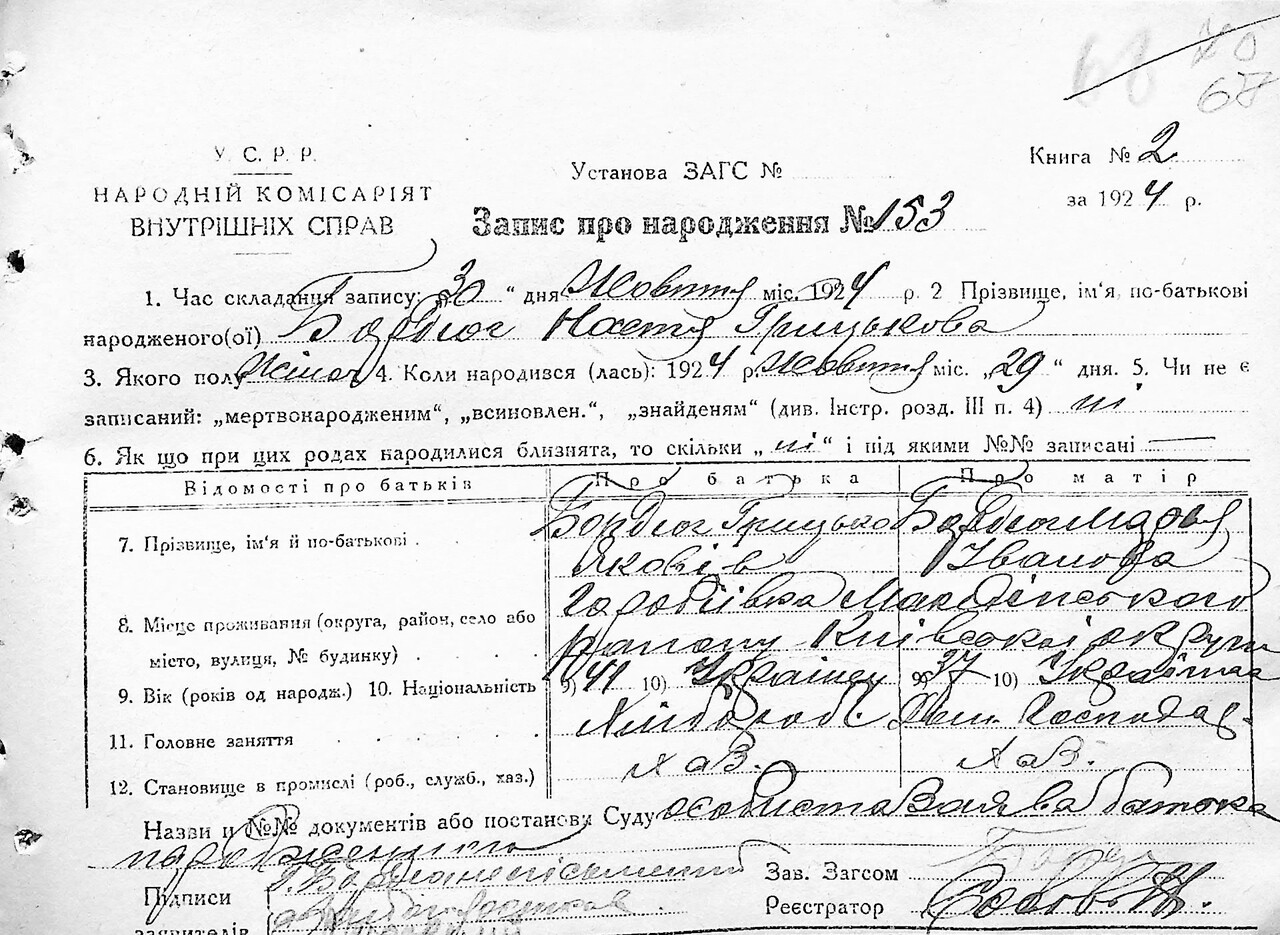 68 70
67
У. С. Р. Р.
НАРОДНІЙ КОМІСАРІЯТ
ВНУТРІШНІХ СПРАВ
Установа ЗАГС №
Книга № 2
за 1924 р.
Запис про народження № 153
1. Час складання запису: „30“ дня Жовтня міс. 1924 р. 2 Прізвище, ім'я, по-батькові
народженого(ої) Бордюг Настя Грицькова
3. Якого полу Жіноч 4. Коли народився (лась): 1924 р. Жовтня міс. „29“ дня. 5. Чи не є
записаний: „мертвонародженим“, „всиновлен.“, „знайденям“ (див. Інстр. розд. III п. 4) ні
6. Як що при цих родах народилися близнята, то скільки „ні“ і під якими №№ записані —
Відомості про батьків Про батька Про матір
7. Прізвище, ім'я й по-батькові Бордюг Грицько Бордюг Марья
Яковів Іванова
8. Місце проживання (округа, район, село або Горобіївка Макарівського
місто, вулиця, № будинку) Району Київської округи
9. Вік (років од народж.) 10. Національність 9) 41 10) Українец 9) 37 10) Українка
11. Головне заняття Хлібороб. Дом. Господар-
12. Становище в промислі (роб., служб., хаз.) хаз. хаз.
Назви й №№ документів або постанови Суду особиста Заява батька
народженого
Підписи
Зав. Загсом
Реєстратор
заявителів